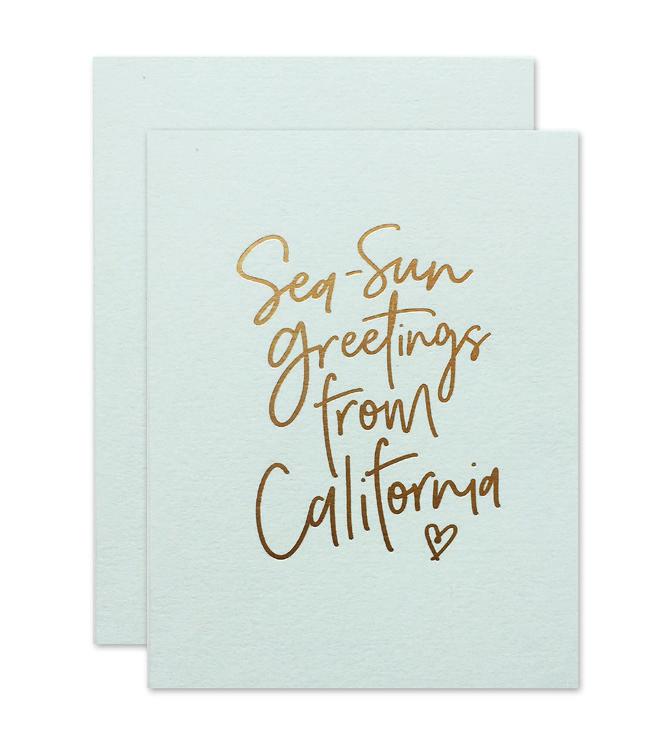 Sea-Sun
greetings
from
California